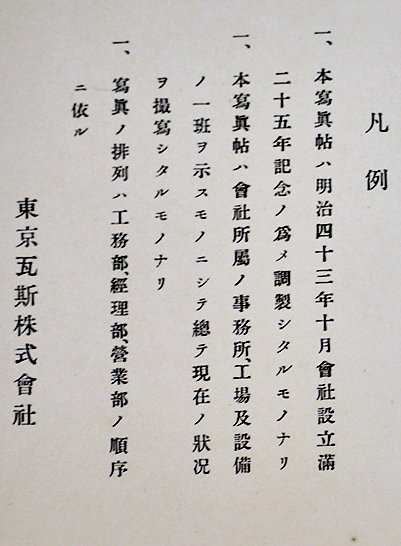 凡例
一、本寫眞帖ハ明治四十三年十月會社設立滿
二十五年記念ノ爲メ調製シタルモノナリ
一、本寫眞帖ハ會社所屬ノ事務所、工場及設備
ノ一班ヲ示スモノニシテ總テ現在ノ狀况
ヲ撮寫シタルモノナリ
一、寫眞ノ排列ハ工務部、經理部、營業部ノ順序
ニ依ル
東京瓦斯株式會社